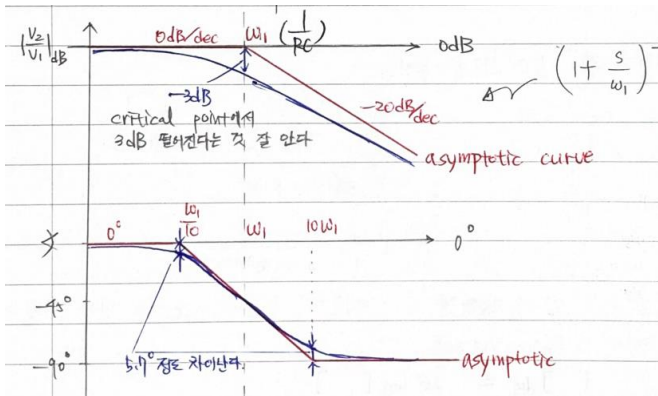 |V2/V1|dB
0dB/dec
ω1 (1/RC)
0dB
(1 + s/ω1)⁻
-3dB
-20dB/dec
critical point에서
3dB 떨어진다는 것 잘 안다
asymptotic curve
0°
ω1/10
ω1
10ω1
0°
-45°
-90°
5.7° 정도 차이난다.
asymptotic